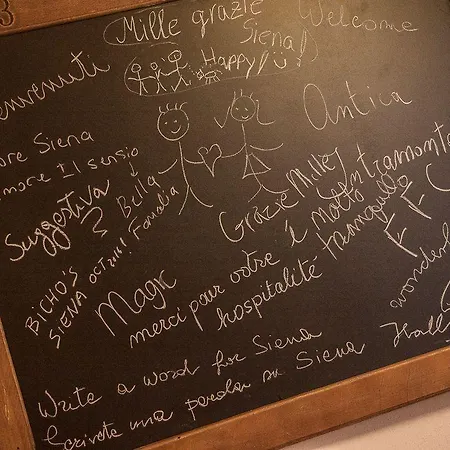 Mille grazie
Siena!
Welcome
Happy!
envenuti
Antica
ore Siena
more Il senso
Suggestiva
Bella
Famalia
Grazie Mille
è molto
tranquillo
BICHO'S
SIENA OCT 2011!
Magic
merci pour votre
hospitalité
wonderful
Write a word for Siena
Scrivete una parola su Siena